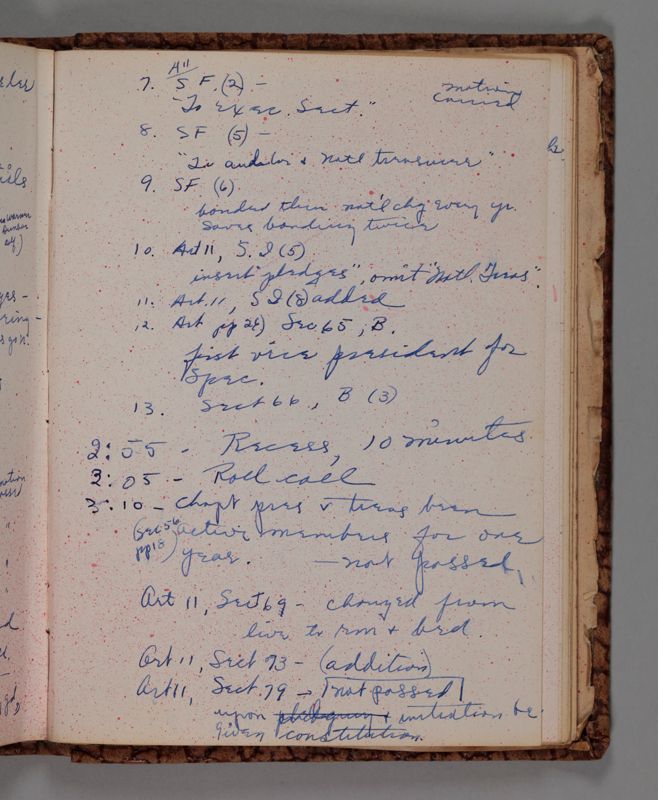 7. Art 11 S F. (2) - motion
"To Exec. Sect." carried
8. SF (5) -
"To auditor & Natl treasurer"
9. SF (6)
bonded then nat'l chg every yr.
saves bonding twice
10. Art 11, S. I (5)
insert "pledges", omit "Natl. Treas".
11. Art. 11, S I (8) added
12. Art pp 28) Sec 65, B.
first vice president for
Spec.
13. Sect 66, B (3)
2:55 - Recess, 10 minutes
3:05 - Roll call
3:10 - Chapt pres & treas been
(Sec 56 active members for one
pp 18) year. - not passed,
Art 11, Sect 69 - changed from
live to rm & bed.
Art 11, Sect 73 - (addition)
Art 11, Sect. 79 - not passed
upon & initiation be
given constitution.